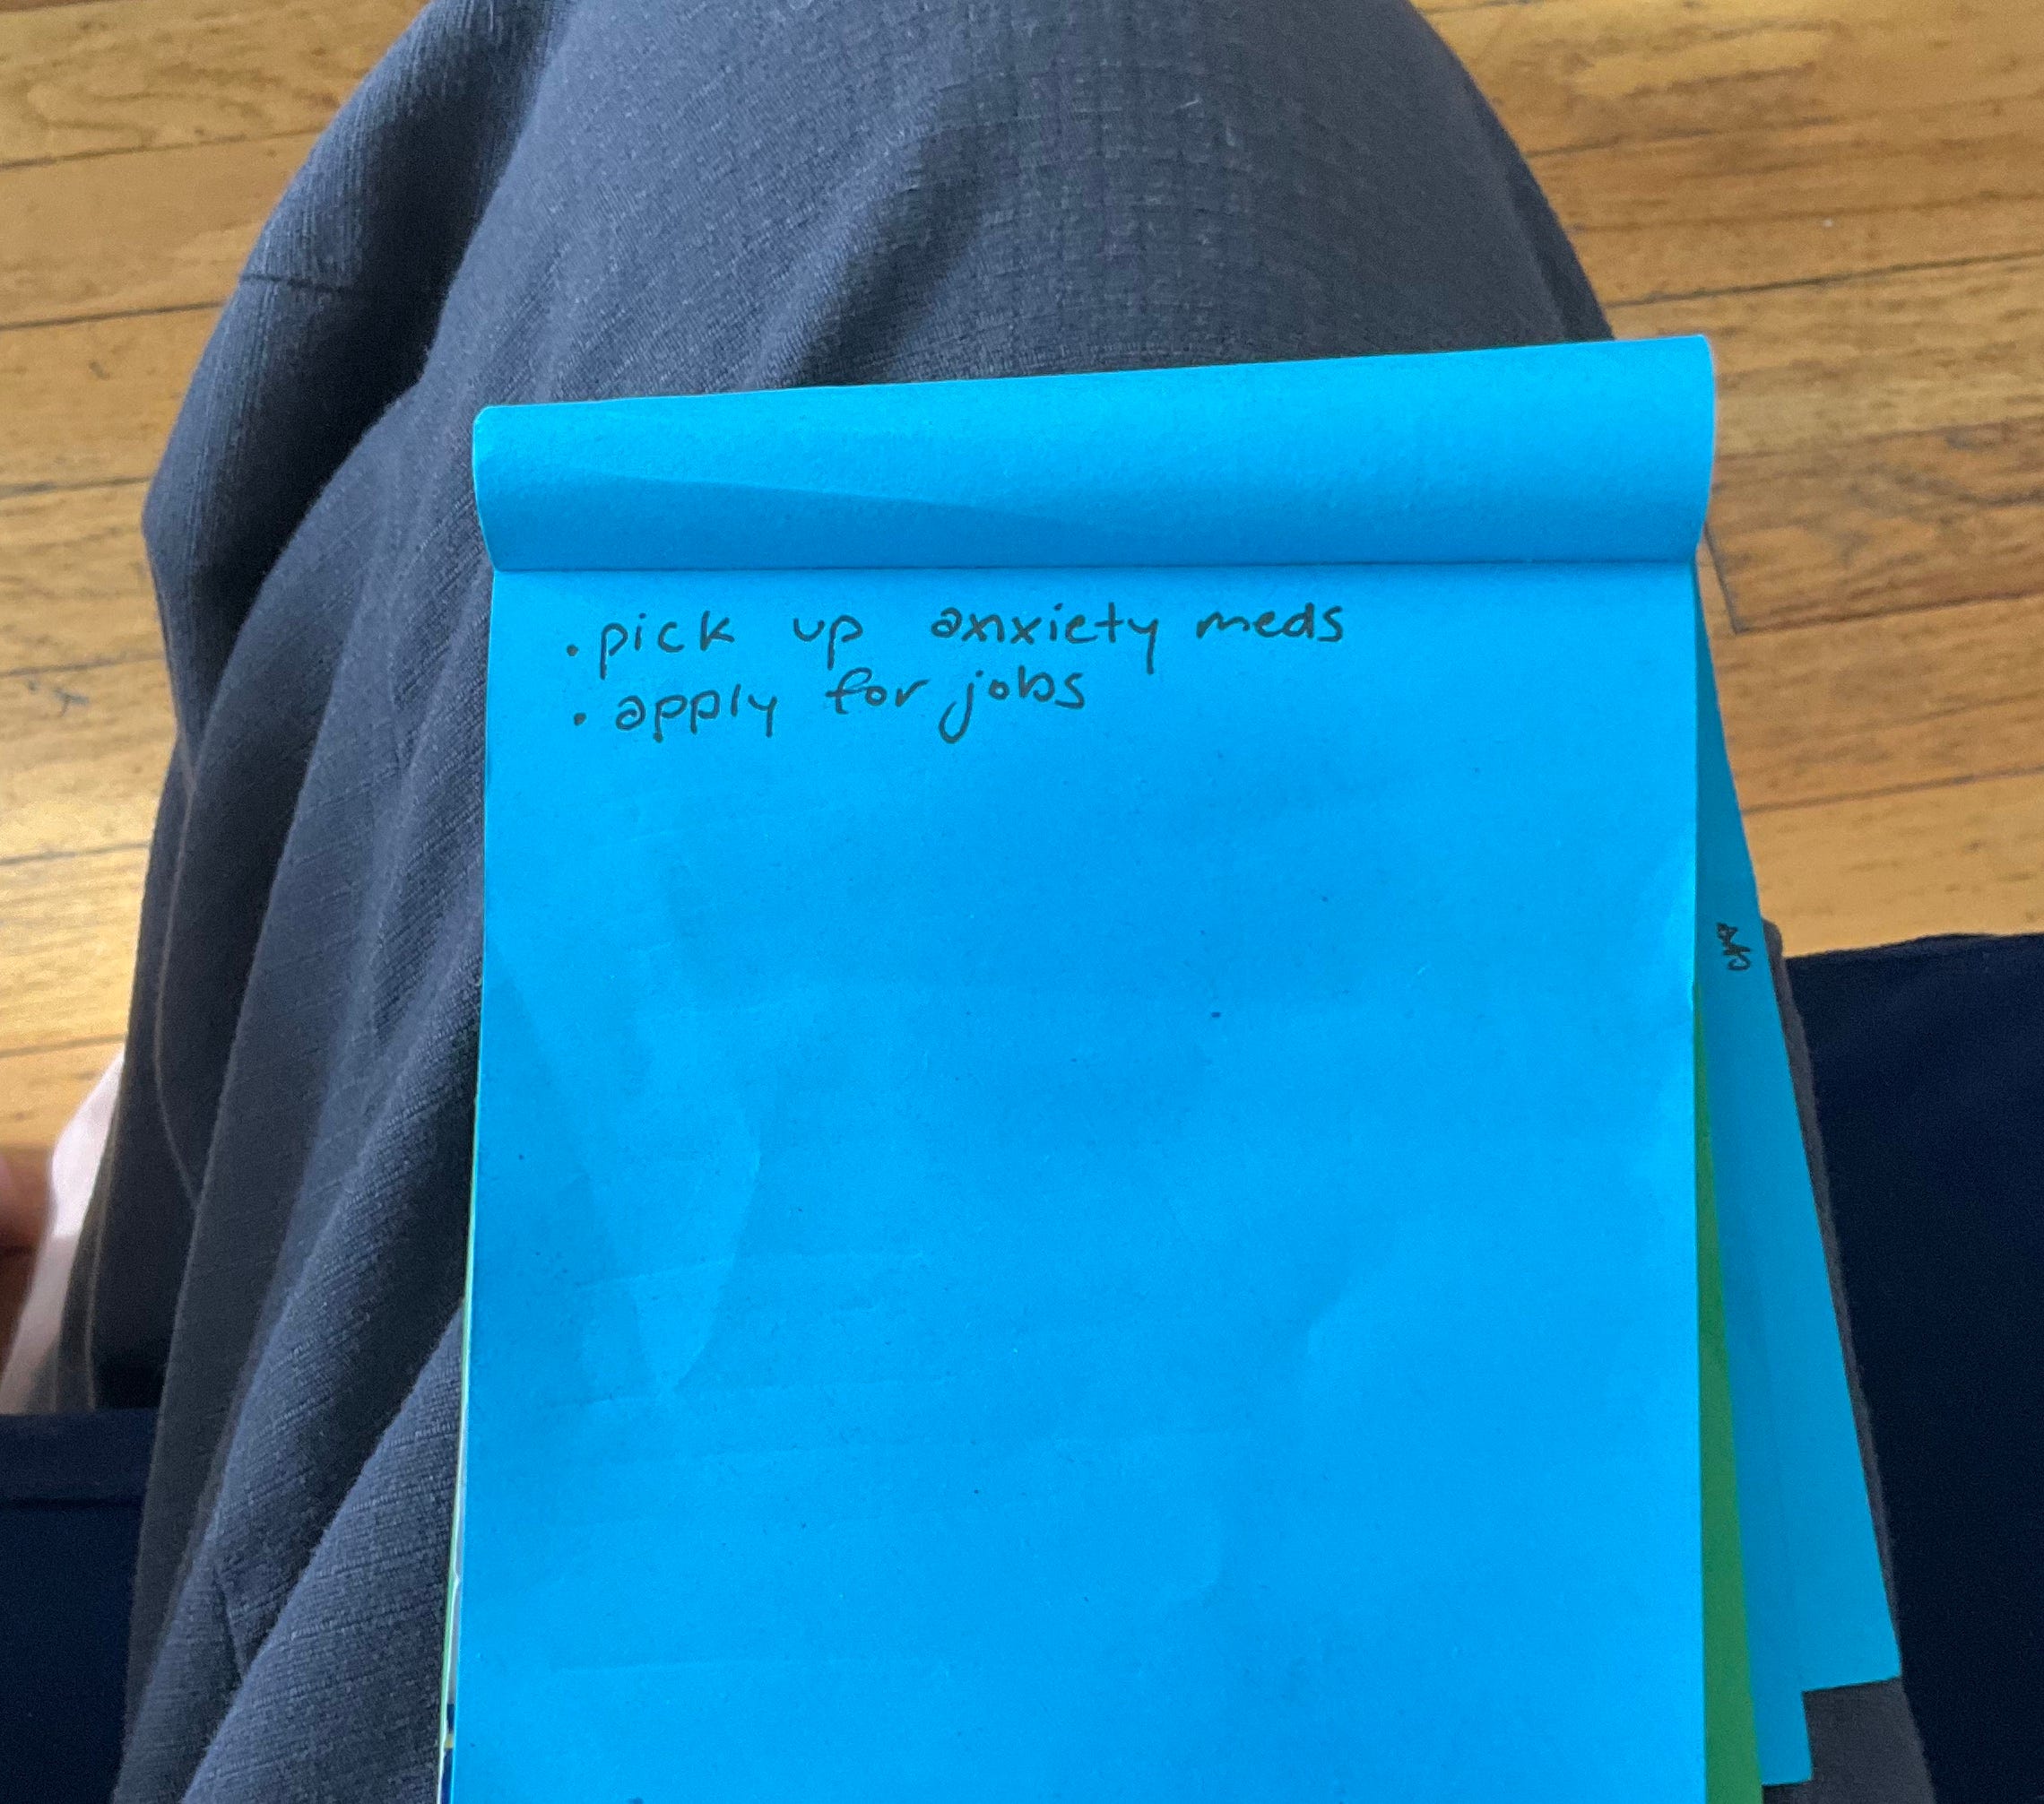 • pick up anxiety meds
• apply for jobs